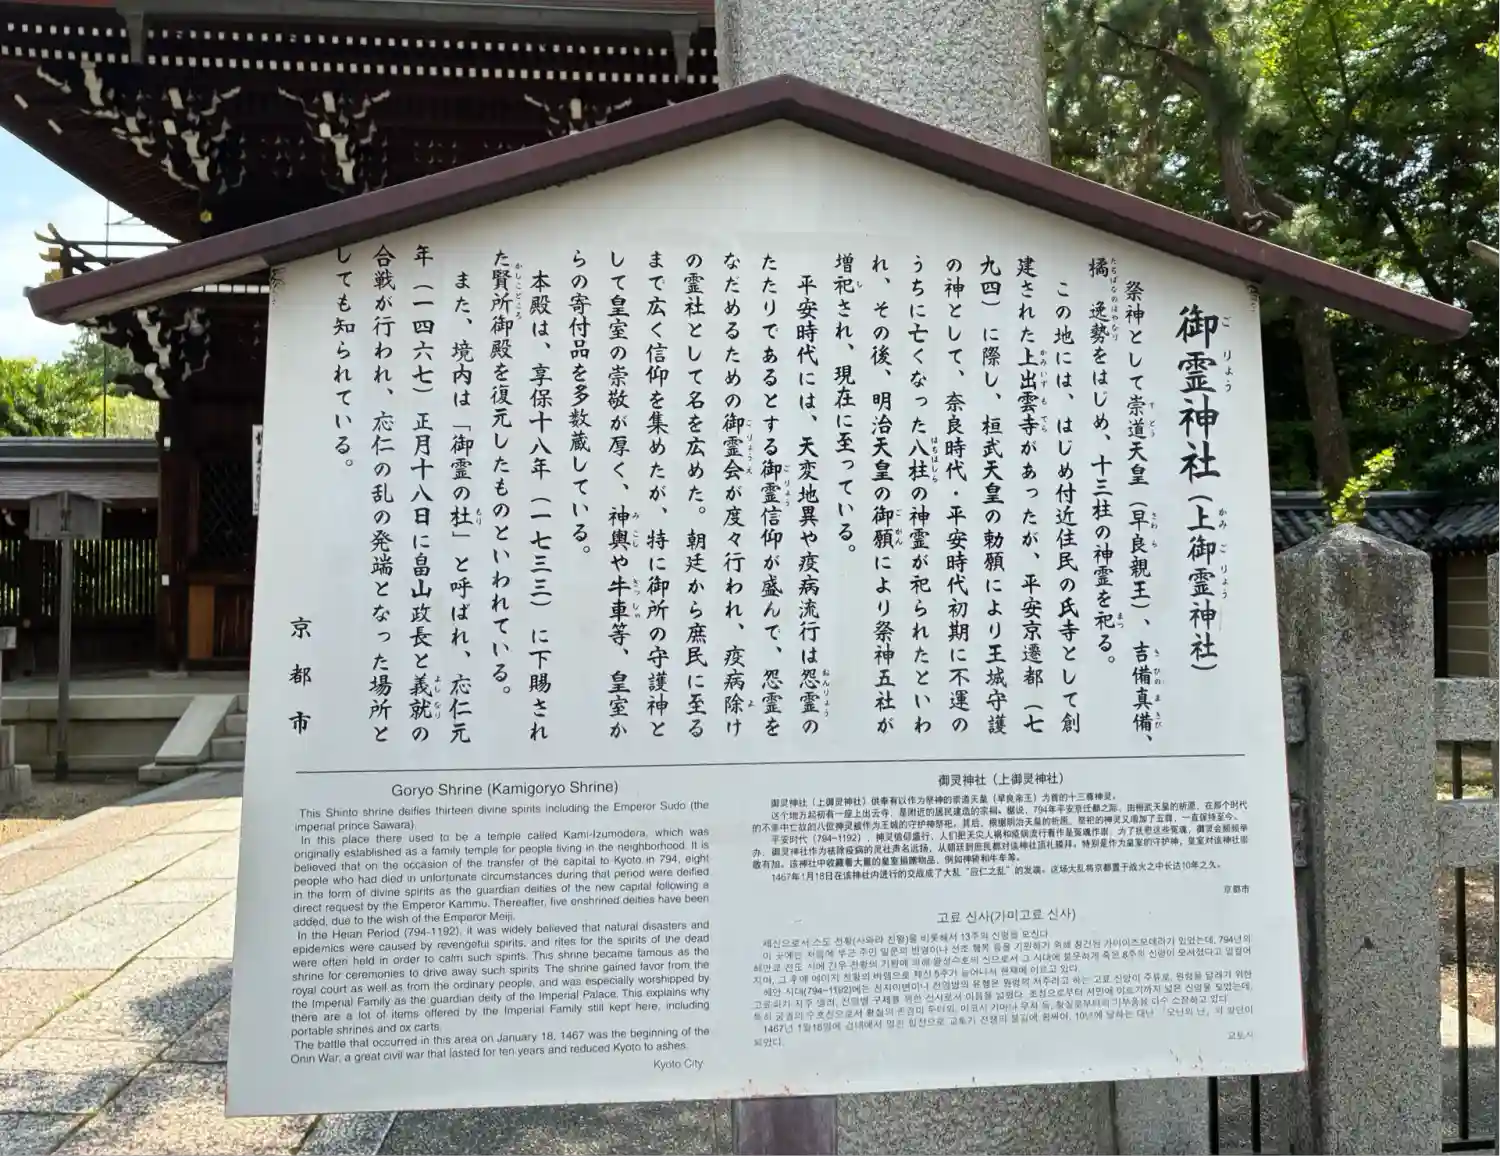 御霊神社(上御霊神社)
祭神として崇道天皇(早良親王)、吉備真備、
橘逸勢をはじめ、十三柱の神霊を祀る。
この地には、はじめ付近住民の氏寺として創
建された上出雲寺があったが、平安京遷都(七
九四)に際し、桓武天皇の勅願により王城守護
の神として、奈良時代・平安時代初期に不運の
うちに亡くなった八柱の神霊が祀られたといわ
れ、その後、明治天皇の御願により祭神五社が
増祀され、現在に至っている。
平安時代には、天変地異や疫病流行は怨霊の
たたりであるとする御霊信仰が盛んで、怨霊を
なだめるための御霊会が度々行われ、疫病除け
の霊社として名を広めた。朝廷から庶民に至る
まで広く信仰を集めたが、特に御所の守護神と
して皇室の崇敬が厚く、神輿や牛車等、皇室か
らの寄付品を多数蔵している。
本殿は、享保十八年(一七三三)に下賜され
た賢所御殿を復元したものといわれている。
また、境内は「御霊の杜」と呼ばれ、応仁元
年(一四六七)正月十八日に畠山政長と義就の
合戦が行われ、応仁の乱の発端となった場所と
しても知られている。
京都市
Goryo Shrine (Kamigoryo Shrine)
This Shinto shrine deifies thirteen divine spirits including the Emperor Sudo (the
imperial prince Sawara).
In this place there used to be a temple called Kami-Izumodera, which was
originally established as a family temple for people living in the neighborhood. It is
believed that on the occasion of the transfer of the capital to Kyoto in 794, eight
people who had died in unfortunate circumstances during that period were deified
in the form of divine spirits as the guardian deities of the new capital following a
direct request by the Emperor Kammu. Thereafter, five enshrined deities have been
added, due to the wish of the Emperor Meiji.
In the Heian Period (794-1192), it was widely believed that natural disasters and
epidemics were caused by revengeful spirits, and rites for the spirits of the dead
were often held in order to calm such spirits. This shrine became famous as the
shrine for ceremonies to drive away such spirits The shrine gained favor from the
royal court as well as from the ordinary people, and was especially worshipped by
the Imperial Family as the guardian deity of the Imperial Palace. This explains why
there are a lot of items offered by the Imperial Family still kept here, including
portable shrines and ox carts.
The battle that occurred in this area on January 18, 1467 was the beginning of the
Onin War, a great civil war that lasted for ten years and reduced Kyoto to ashes.
Kyoto City
御灵神社(上御灵神社)
御灵神社(上御灵神社)供奉有以作为祭神的崇道天皇(早良帝王)为首的十三尊神灵。
这个地方起初有一座上出云寺,是附近的居民建造的宗祠。据说,794年平安京迁都之际,由桓武天皇的祈愿,在那个时代
的不幸中亡故的八位神灵被作为王城的守护神祭祀。其后,根据明治天皇的祈愿,祭祀的神灵又增加了五尊,一直保持至今。
平安时代(794-1192),神灵信仰盛行,人们把天灾人祸和疫病流行看作是冤魂作祟,为了抚慰这些冤魂,御灵会频频举
办,御灵神社作为祛除疫病的灵社声名远扬,从朝廷到庶民都对该神社顶礼膜拜。特别是作为皇室的守护神,皇室对该神社崇
敬有加。该神社中收藏着大量的皇室捐赠物品,例如神轿和牛车等。
1467年1月18日在该神社内进行的交战成了大乱“应仁之乱”的发端。这场大乱将京都置于战火之中长达10年之久。
京都市
고료 신사(가미고료 신사)
제신으로서 스도 천황(사와라 친왕)을 비롯해서 13주의 신령을 모신다
교토시